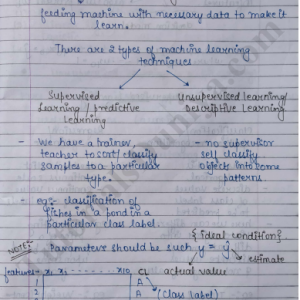 feeding machine with necessary data to make it
learn.
There are 2 types of machine learning
techniques
Supervised
Learning / predictive
Learning
Unsupervised learning/
Descriptive Learning
- We have a trainer,
teacher to sort/classify
samples to a particular
type.
- no supervisor
self classify
objects into some
patterns.
- eg:- classification of
fishes in a pond in a
particular class label.
{ideal condition}
NOTE:- Parameters should be such y = ŷ
estimate
actual value
features x₁ x₂ - - - - - - x₁₀
1 A
2 A (class label)